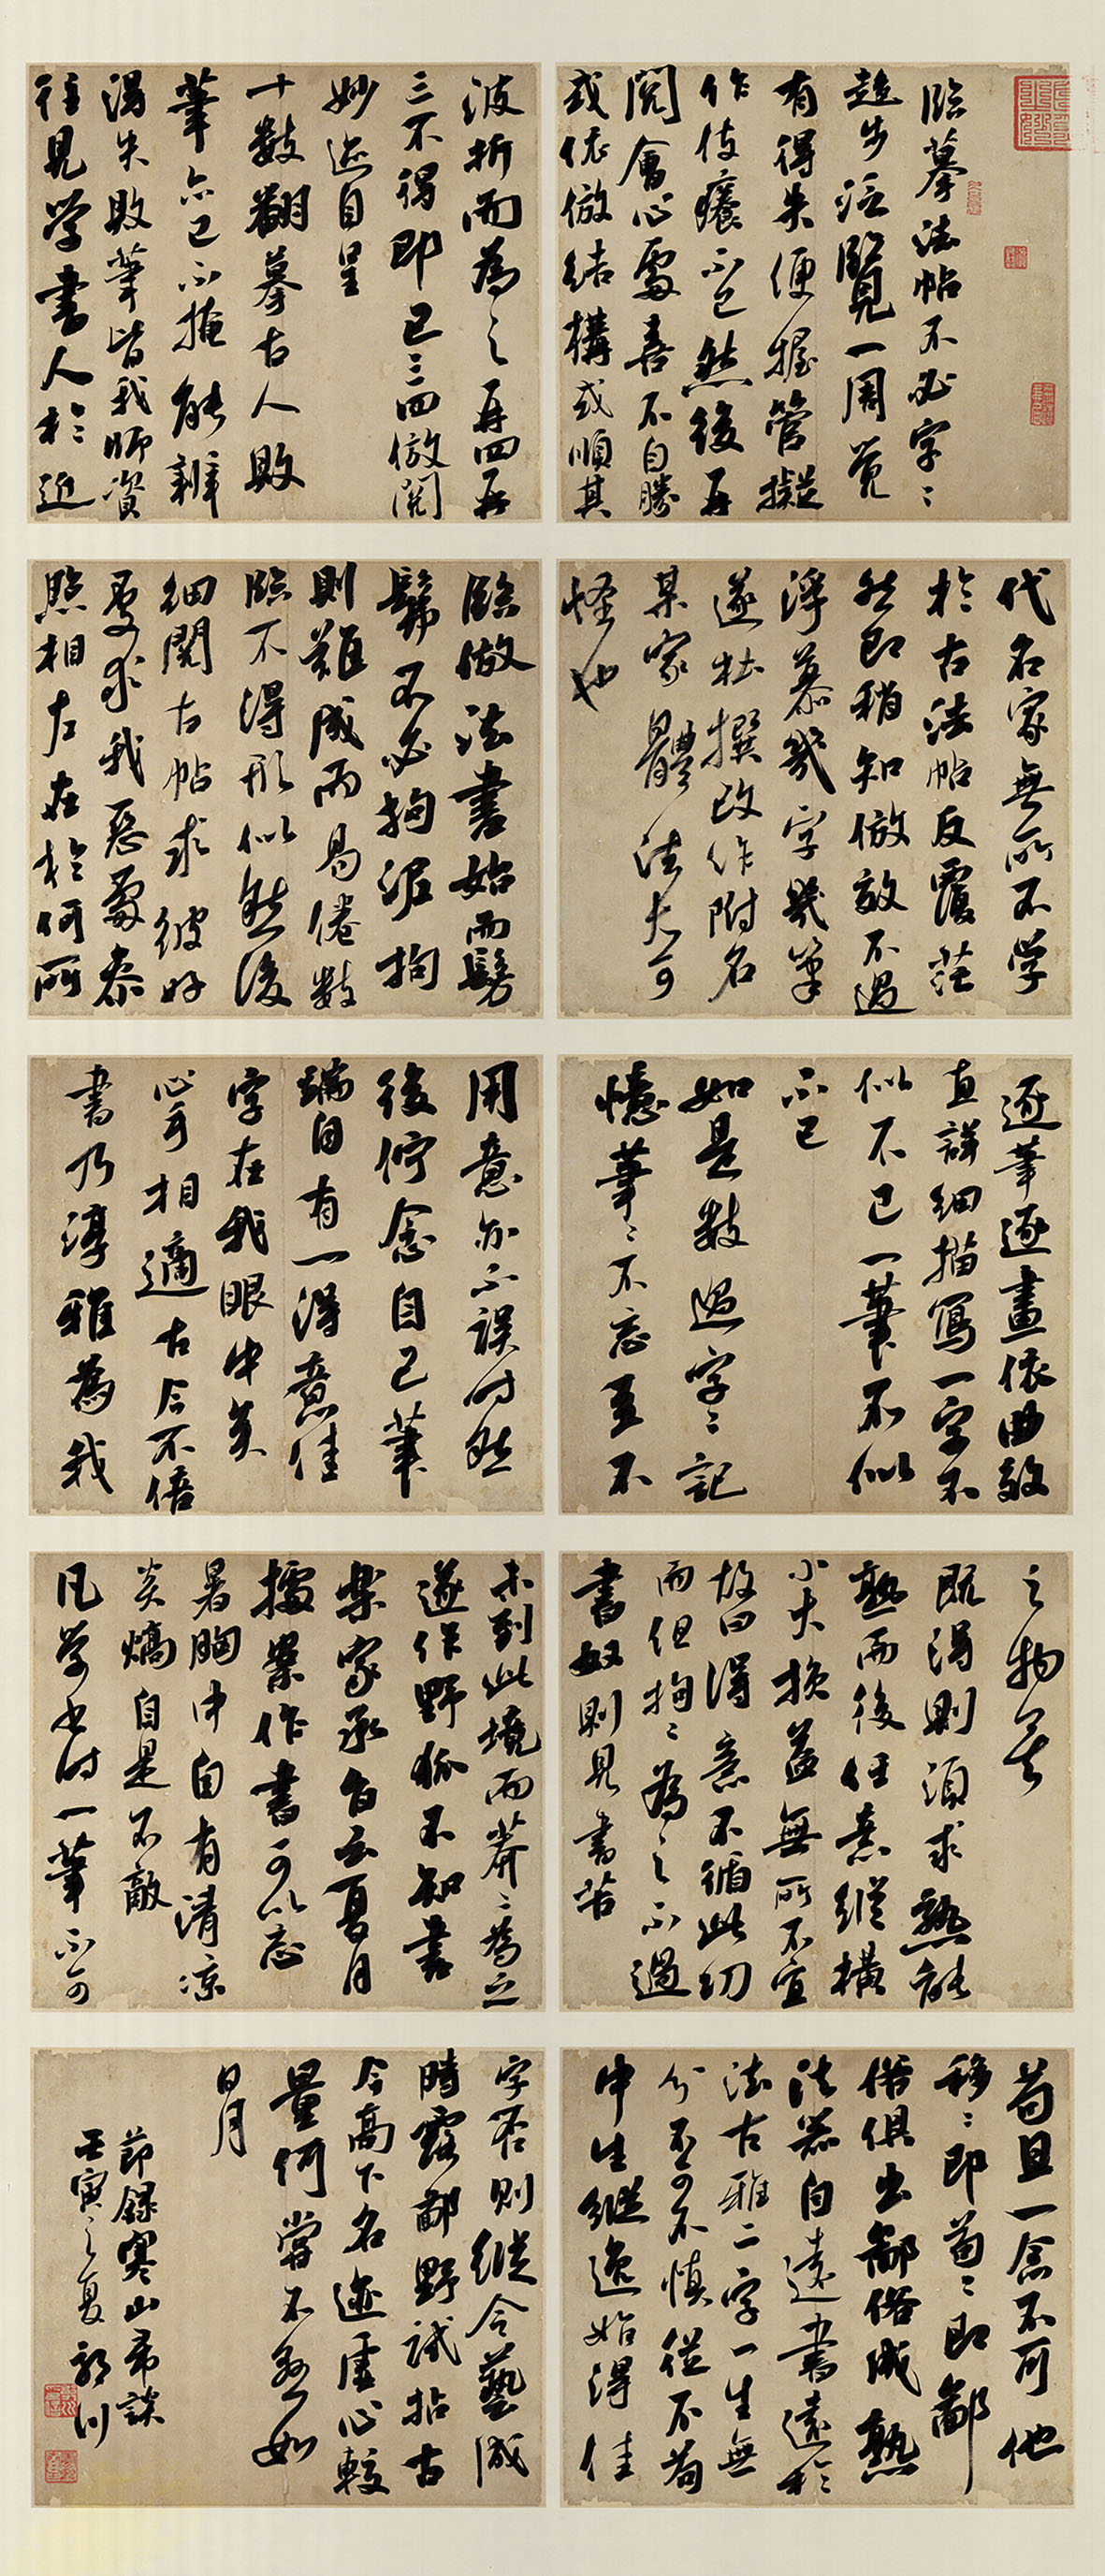 临摹法帖不必字〻
趋步泛覽一周觉
有得失便握管擬
作伎癢不已然後再
閲會心處喜不自勝
或依倣結構或順其
波折而為之再四再
三不得即已三四倣閲
妙迹自呈
十數翻摹古人敗
筆亦已不掩能辨
得失敗筆皆我師資
往見学書人於近
代名家無所不学
於古法帖反覆茫
然即稍知倣效不過
浮慕幾字幾筆
遂杜撰改作附名
某家體法大可
怪也
臨倣法書始而髣
髴不必拘泥拘
則難成而易倦數
臨不得形似然後
細閲古帖求彼好
處求我惡處泰
照相左在於何所
逐筆逐畫依曲效
直詳細描寫一字不
似不已一筆不似
不已
如是數過字〻記
憶筆〻不忘並不
用意亦不誤时然
後佇念自己筆
端自有一得意佳
字在我眼中矣
心手相適古今不倍
書乃淳雅為我
之物矣
既得則須求熟能
熟而後任意縱橫
小大损益無所不宜
故曰得意不循此切
而但拘〻為之不過
書奴則見書苦
未到此境而莽〻為之
遂作野狐不知書
樂家承旨云夏月
據案作書可以忘
暑胸中自有清凉
炎熇自是不敵
凡学书时一筆不可
苟且一念不可他
移〻即苟〻即鄙
俗俱出鄙俗成熟
法器自遠書遠於
法古雅二字一生無
分不可不慎從不苟
中生縱逸始得佳
字否則縱令藝成
時露鄙野試拈古
今高下名迹虛心較
量何嘗不然如
日月
節錄寒山帚談
壬寅之夏 朝川